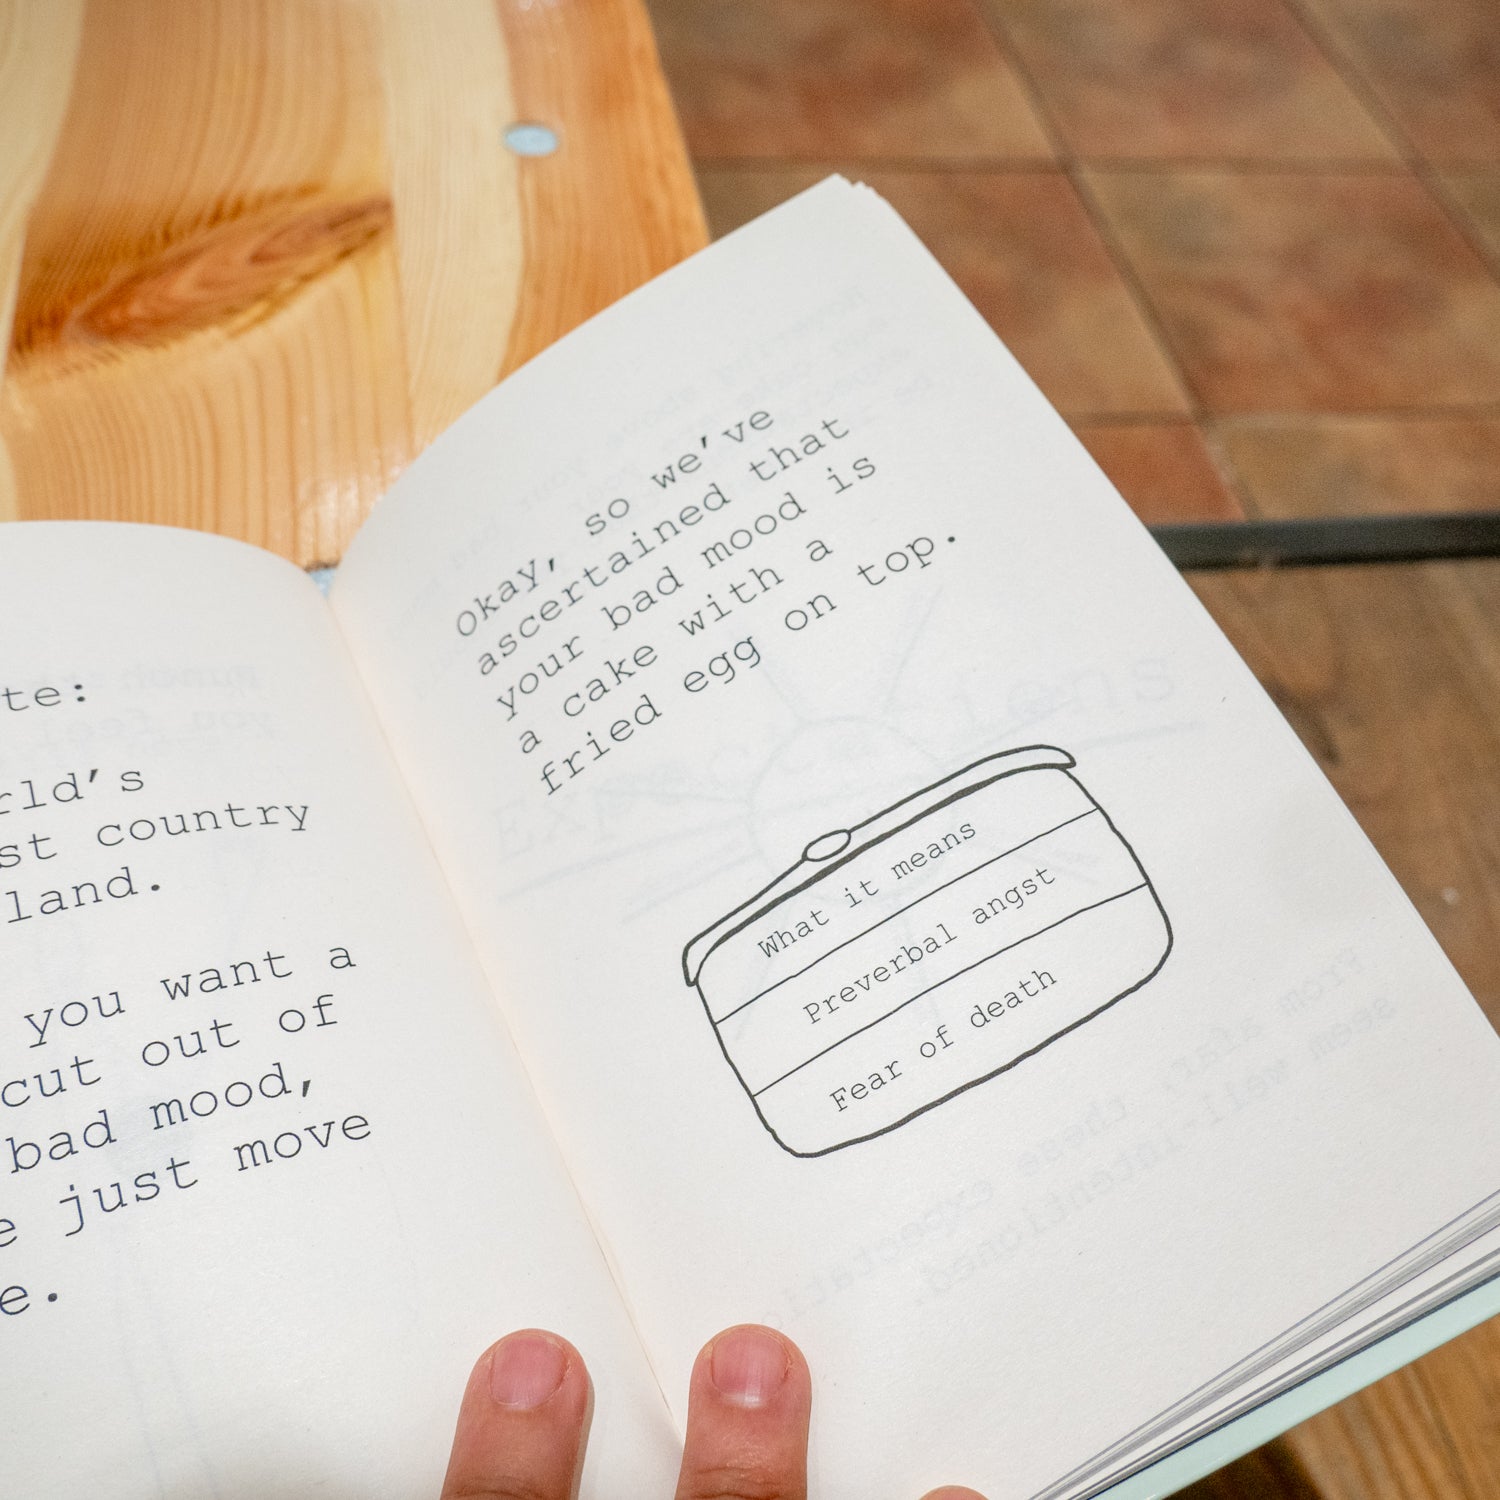 you want a
cut out of
bad mood,
just move
country
land.
Okay, so we've
ascertained that
your bad mood is
a cake with a
fried egg on top.
What it means
Preverbal angst
Fear of death